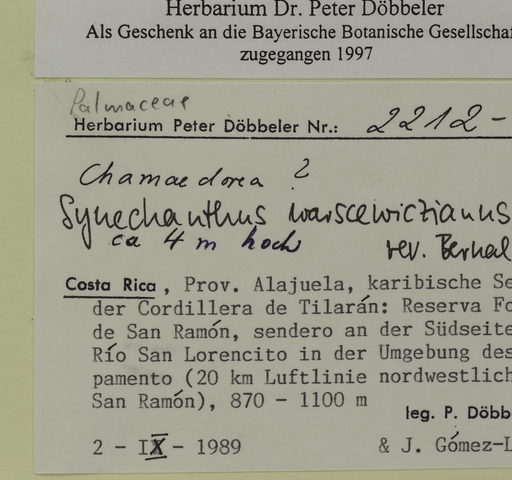 Herbarium Dr. Peter Döbbeler
Als Geschenk an die Bayerische Botanische Gesellschaf
zugegangen 1997
Palmaceae
Herbarium Peter Döbbeler Nr.: 2212-
Chamaedorea ?
Synechanthus warscewiczianus
ca 4 m hoch rev. Bernal
Costa Rica, Prov. Alajuela, karibische Se
der Cordillera de Tilarán: Reserva Fo
de San Ramón, sendero an der Südseite
Río San Lorencito in der Umgebung des
pamento (20 km Luftlinie nordwestlich
San Ramón), 870 - 1100 m
leg. P. Döbb
2 - IX - 1989 & J. Gómez-L